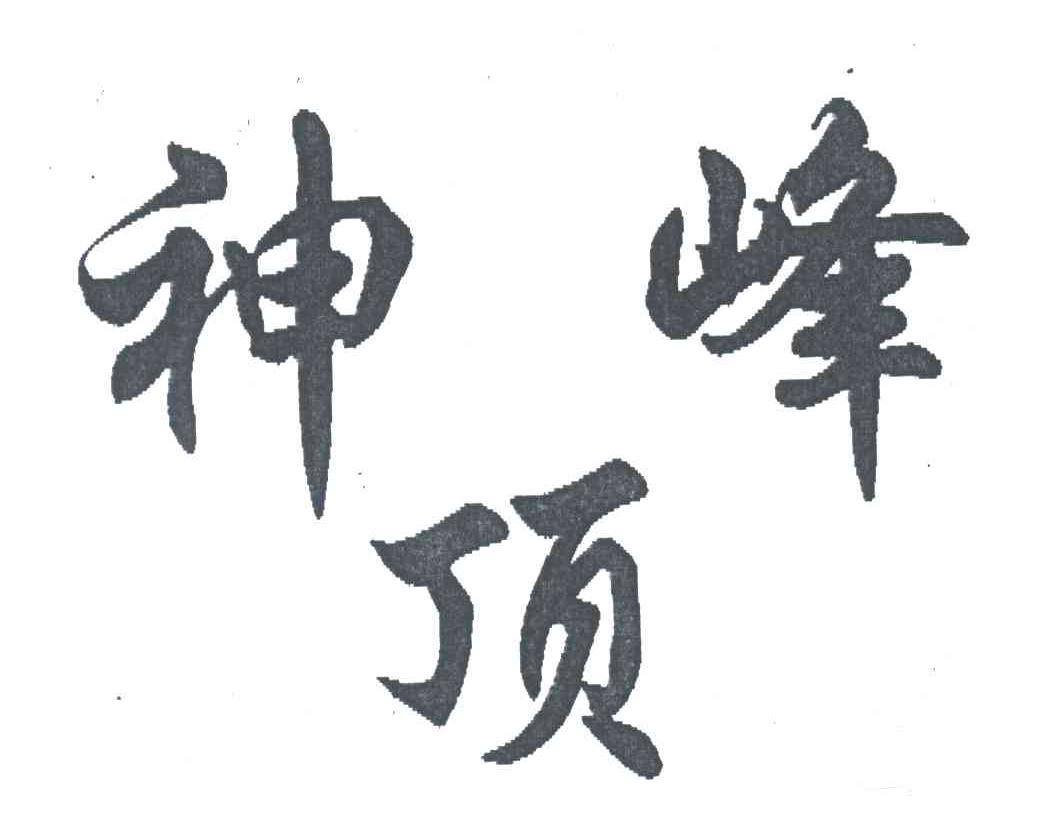 神峰
顶